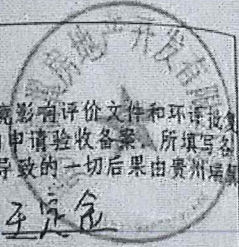 房地产开发有限
竟影响评价文件和环评批复
申请验收备案，所填写各
导致的一切后果由贵州瑞